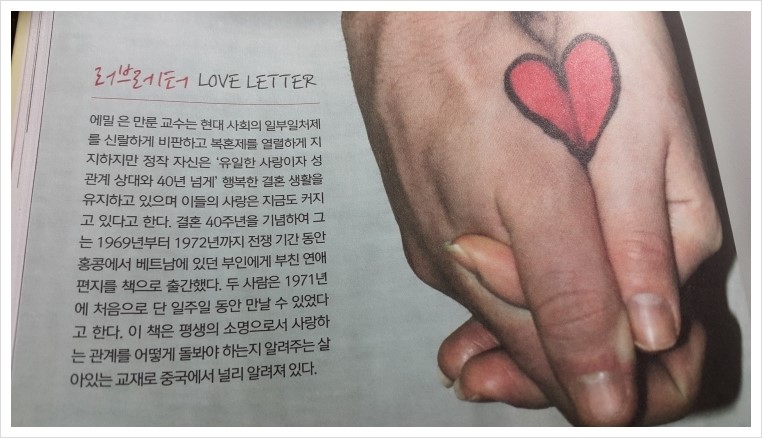 러브레터 LOVE LETTER
에밀 은 만룬 교수는 현대 사회의 일부일처제
를 신랄하게 비판하고 복혼제를 열렬하게 지
지하지만 정작 자신은 ‘유일한 사랑이자 성
관계 상대와 40년 넘게’ 행복한 결혼 생활을
유지하고 있으며 이들의 사랑은 지금도 커지
고 있다고 한다. 결혼 40주년을 기념하여 그
는 1969년부터 1972년까지 전쟁 기간 동안
홍콩에서 베트남에 있던 부인에게 부친 연애
편지를 책으로 출간했다. 두 사람은 1971년
에 처음으로 단 일주일 동안 만날 수 있었다
고 한다. 이 책은 평생의 소명으로서 사랑하
는 관계를 어떻게 돌봐야 하는지 알려주는 살
아있는 교재로 중국에서 널리 알려져 있다.